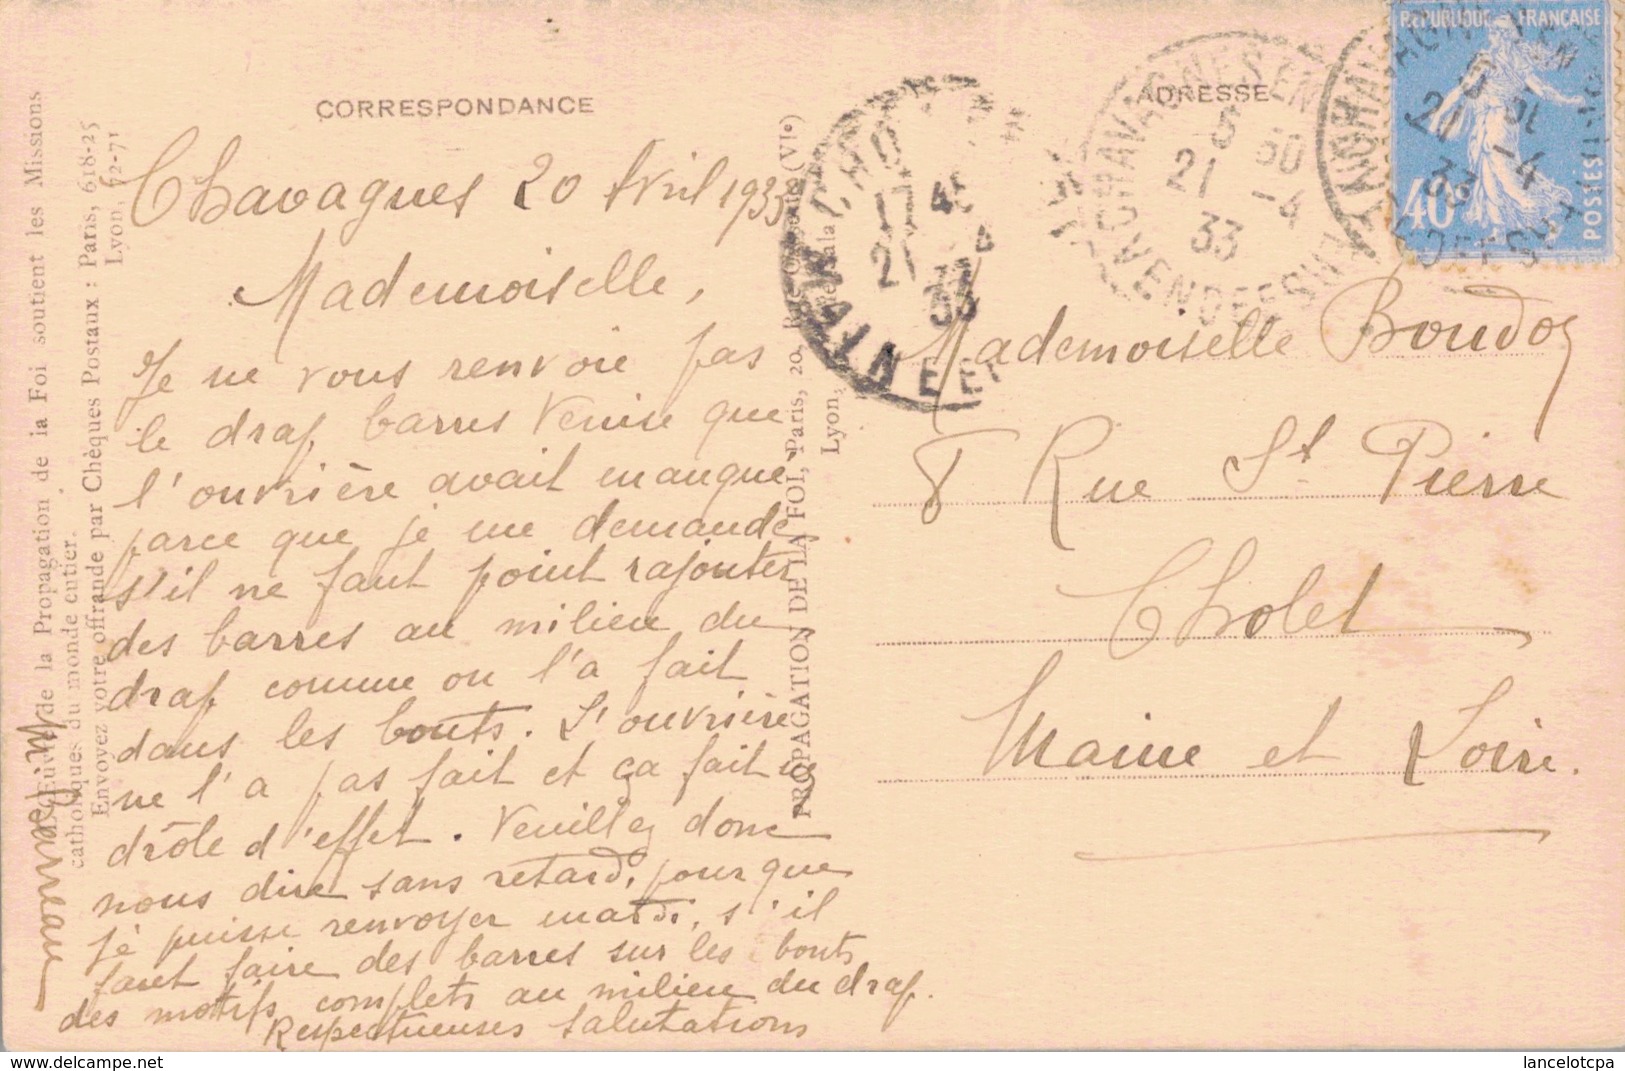 CORRESPONDANCE
Chavagnes 20 Avril 1933
Mademoiselle,
Je ne vous renvoie pas
le drap barres Venise que
l'ouvrière avait manqué
parce que je me demande
s'il ne faut point rajouter
des barres au milieu du
drap comme on l'a fait
dans les bouts. L'ouvrière
ne l'a pas fait et ça fait
drôle d'effet. Veuillez donc
nous dire sans retard, pour que
je puisse renvoyer mardi, s'il
faut faire des barres sur les bouts
des motifs complets au milieu du drap.
Respectueuses salutations
ADRESSE
Mademoiselle
8 Rue St Pierre
Cholet
Maine et Loire.
RÉPUBLIQUE FRANÇAISE
40
POSTES
CHAVAGNES EN
21 -4
33
VENDEE
21
33
de la Propagation de la Foi soutient les Missions
catholiques du monde entier.
Envoyez votre offrande par Chèques Postaux : Paris, 618-25
Lyon, 72-71
PROPAGATION DE LA FOI, Paris, 20, (VIe)
Lyon,
delcampe.net
lancelotcpa